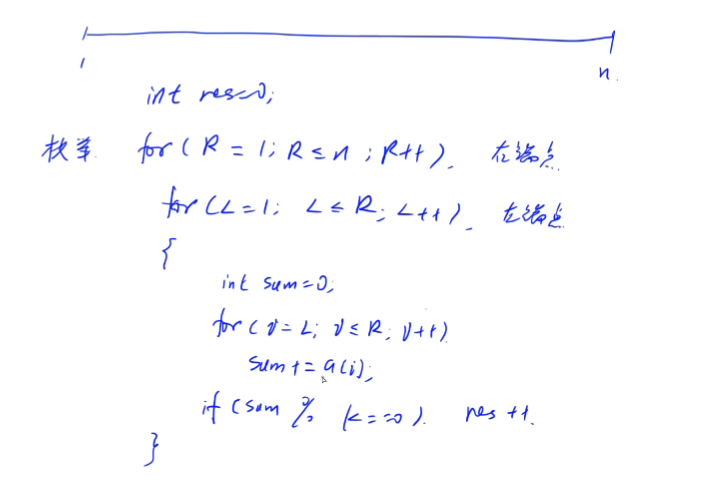 1 n.
int res=0;
枚举 for(R=1; R≤n; R++). 右端点
for(L=1; L≤R; L++). 左端点
{
int sum=0;
for(i=L; i≤R; i++)
sum+=a(i);
if(sum % k==0). res++.
}